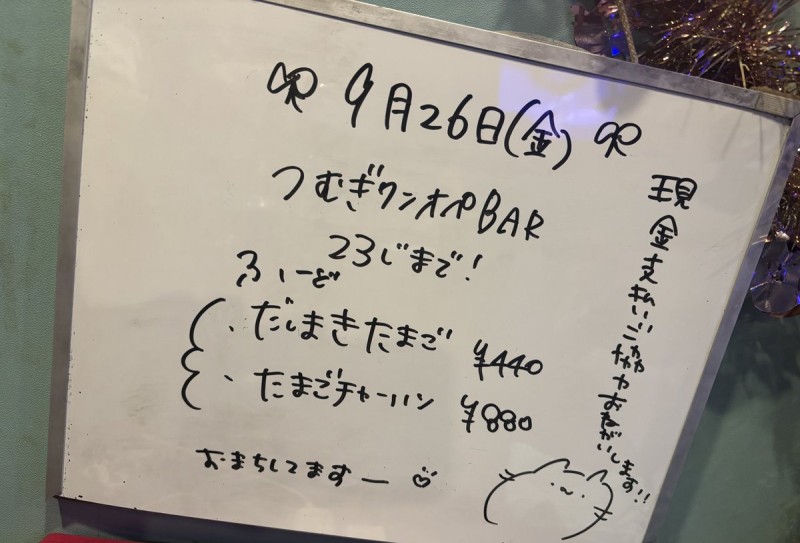 9月26日(金)
つむぎワンオペBAR
23じまで!
ふーど
・だしまきたまご ¥440
・たまごチャーハン ¥880
おまちしてますー
現金支払いご協力おねがいします!!